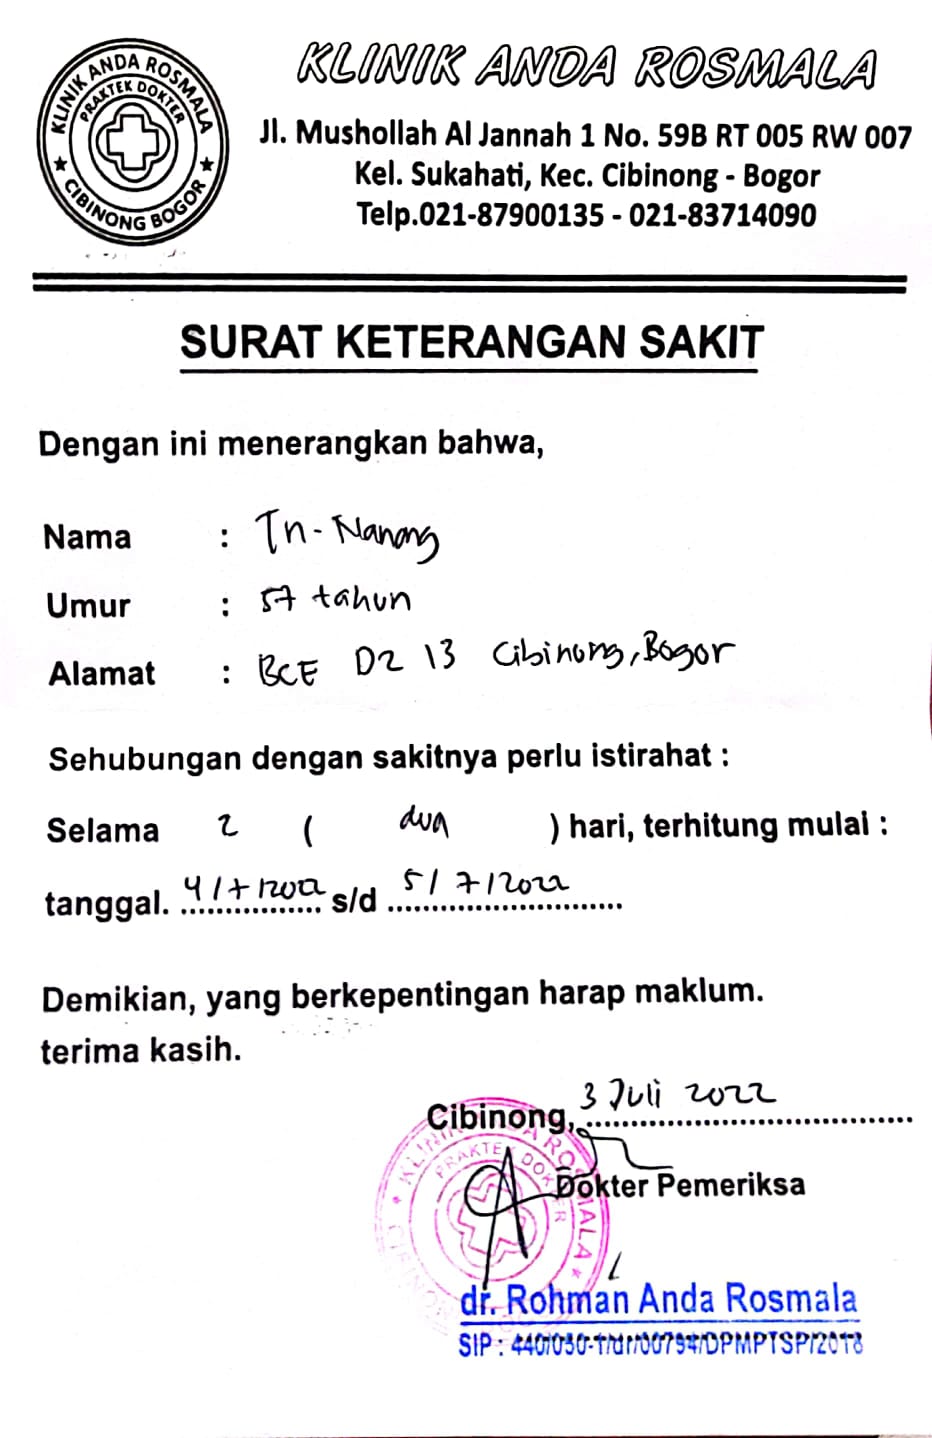 KLINIK ANDA ROSMALA
PRAKTEK DOKTER
CIBINONG BOGOR
KLINIK ANDA ROSMALA
Jl. Mushollah Al Jannah 1 No. 59B RT 005 RW 007
Kel. Sukahati, Kec. Cibinong - Bogor
Telp.021-87900135 - 021-83714090
SURAT KETERANGAN SAKIT
Dengan ini menerangkan bahwa,
Nama : Tn. Nanang
Umur : 57 tahun
Alamat : BCE D2 13 Cibinong, Bogor
Sehubungan dengan sakitnya perlu istirahat :
Selama 2 ( dua ) hari, terhitung mulai :
tanggal. 4/7/2022 s/d 5/7/2022
Demikian, yang berkepentingan harap maklum.
terima kasih.
Cibinong, 3 Juli 2022
KLINIK ANDA ROSMALA
PRAKTEK DOKTER
Dokter Pemeriksa
dr. Rohman Anda Rosmala
SIP :